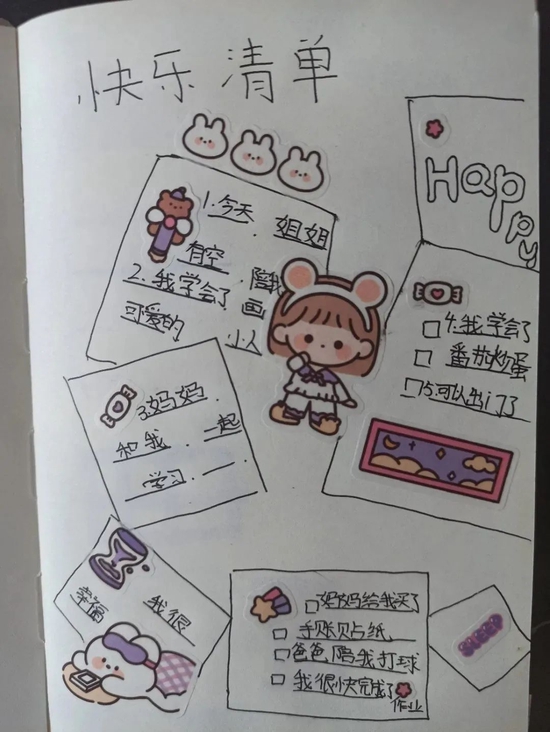 快乐清单
Happy
1.今天 姐姐
有空
陪我
2.我学会了 画
可爱的 小人
4.我学会了
番茄炒蛋
5.可以出门了
3.妈妈
和我 一起
学习
我很
幸福
妈妈给我买了
手账贴纸
爸爸陪我打球
我很快完成了
作业